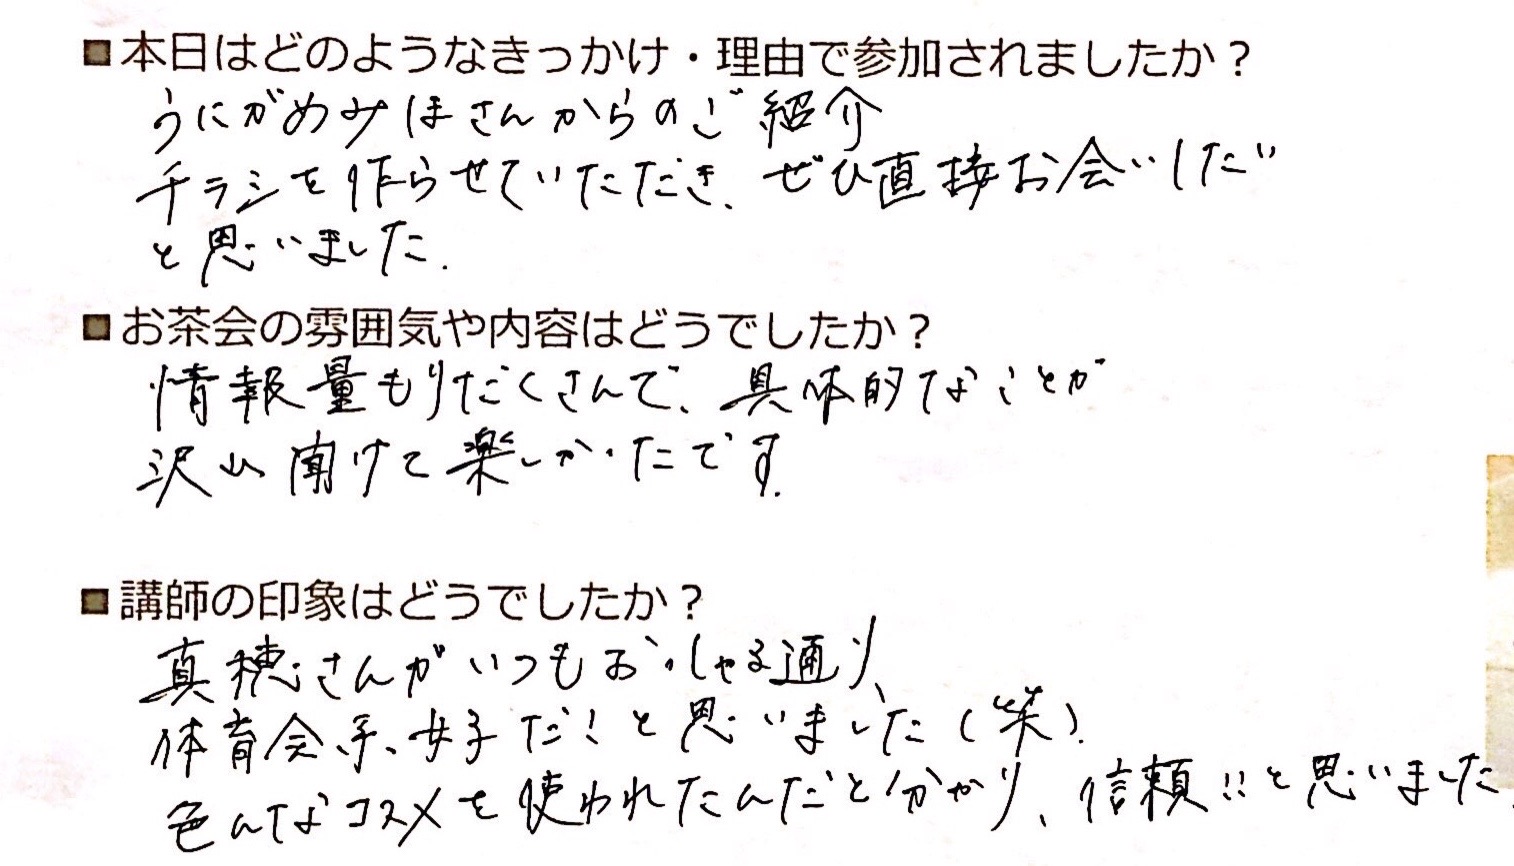 ■本日はどのようなきっかけ・理由で参加されましたか？
うにがめみほさんからのご紹介
チラシを作らせていただき、ぜひ直接お会いしたい
と思いました.
■お茶会の雰囲気や内容はどうでしたか？
情報量もりだくさんで、具体的なことが
沢山聞けて楽しかったです.
■講師の印象はどうでしたか？
真穂さんがいつもおっしゃる通り、
体育会系女子だ!と思いました(笑).
色んなコスメを使われたんだと分かり、信頼!!と思いました.